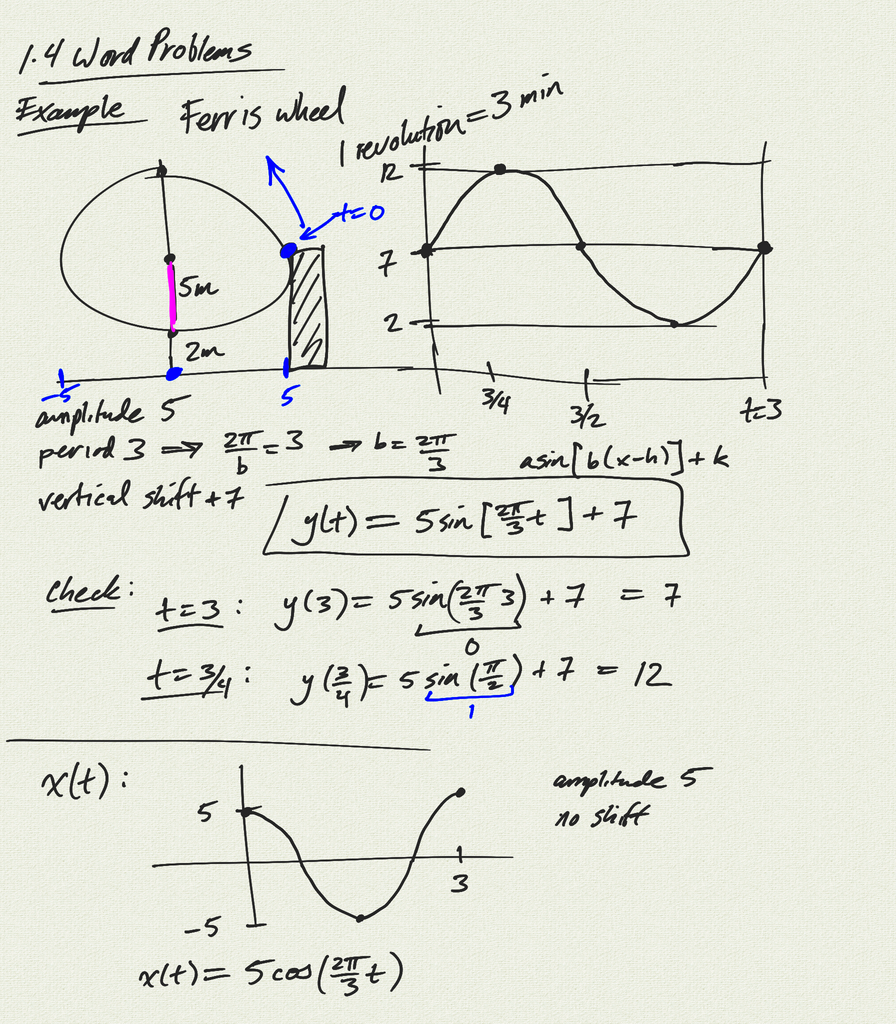 1.4 Word Problems
Example Ferris wheel
1 revolution = 3 min
t=0
5m
2m
-5
5
12
7
2
3/4
3/2
t=3
amplitude 5
period 3 ⟹ 2π/b = 3 ⟹ b = 2π/3
a sin[b(x-h)] + k
vertical shift +7
y(t) = 5 sin[2π/3 t] + 7
Check:
t=3: y(3) = 5 sin(2π/3 3) + 7 = 7
0
t=3/4: y(3/4) = 5 sin(π/2) + 7 = 12
1
x(t):
5
-5
3
amplitude 5
no shift
x(t) = 5 cos(2π/3 t)